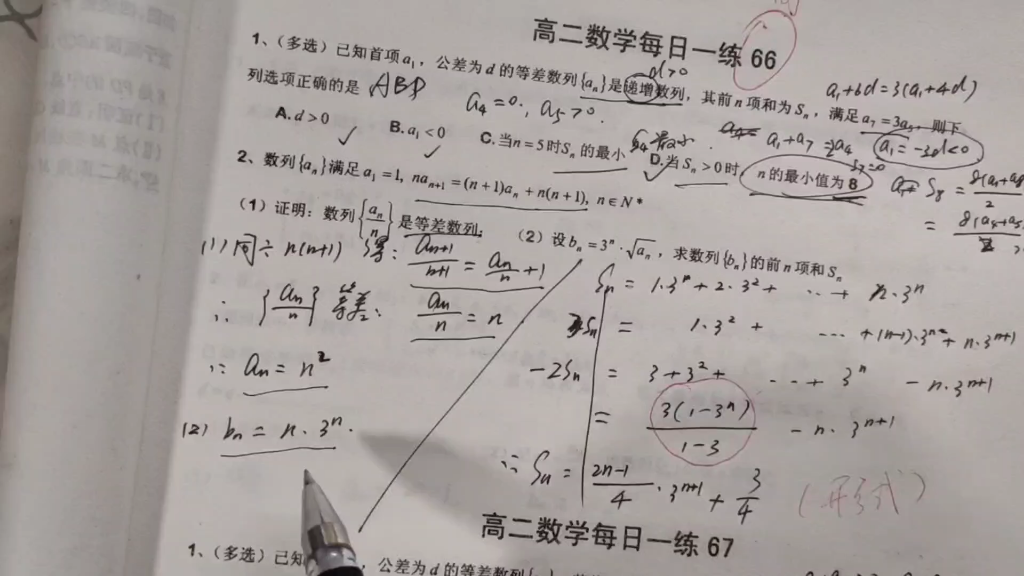 高二数学每日一练 66
1、（多选）已知首项a₁，公差为d的等差数列{aₙ}是递增数列，其前n项和为Sₙ，满足a₇=3a₅，则下
d>0
a₁+6d=3(a₁+4d)
列选项正确的是 ABD
a₄=0, a₅>0.
a₁+a₇=2a₄
a₁=-3d<0
A.d>0 ✓ B.a₁<0 ✓ C.当n=5时Sₙ的最小 D.当Sₙ>0时 n的最小值为8
S₇=0
2、数列{aₙ}满足a₁=1, naₙ₊₁=(n+1)aₙ+n(n+1), n∈N*
（1）证明：数列{aₙ/n}是等差数列. （2）设bₙ=3ⁿ·√aₙ，求数列{bₙ}的前n项和Sₙ
(1) 同÷ n(n+1) 得: aₙ₊₁/(n+1) = aₙ/n + 1
∴ {aₙ/n} 等差, aₙ/n = n
∴ aₙ = n²
(2) bₙ = n·3ⁿ.
Sₙ = 1·3ⁿ + 2·3² + ··+ n·3ⁿ
3Sₙ = 1·3² + ··· + (n-1)·3ⁿ + n·3ⁿ⁺¹
-2Sₙ = 3+3²+ ···+ 3ⁿ - n·3ⁿ⁺¹
= 3(1-3ⁿ)/(1-3) - n·3ⁿ⁺¹
∴ Sₙ = (2n-1)/4 · 3ⁿ⁺¹ + 3/4 (形式)
高二数学每日一练 67
1、（多选）已知 ，公差为d的等差数列